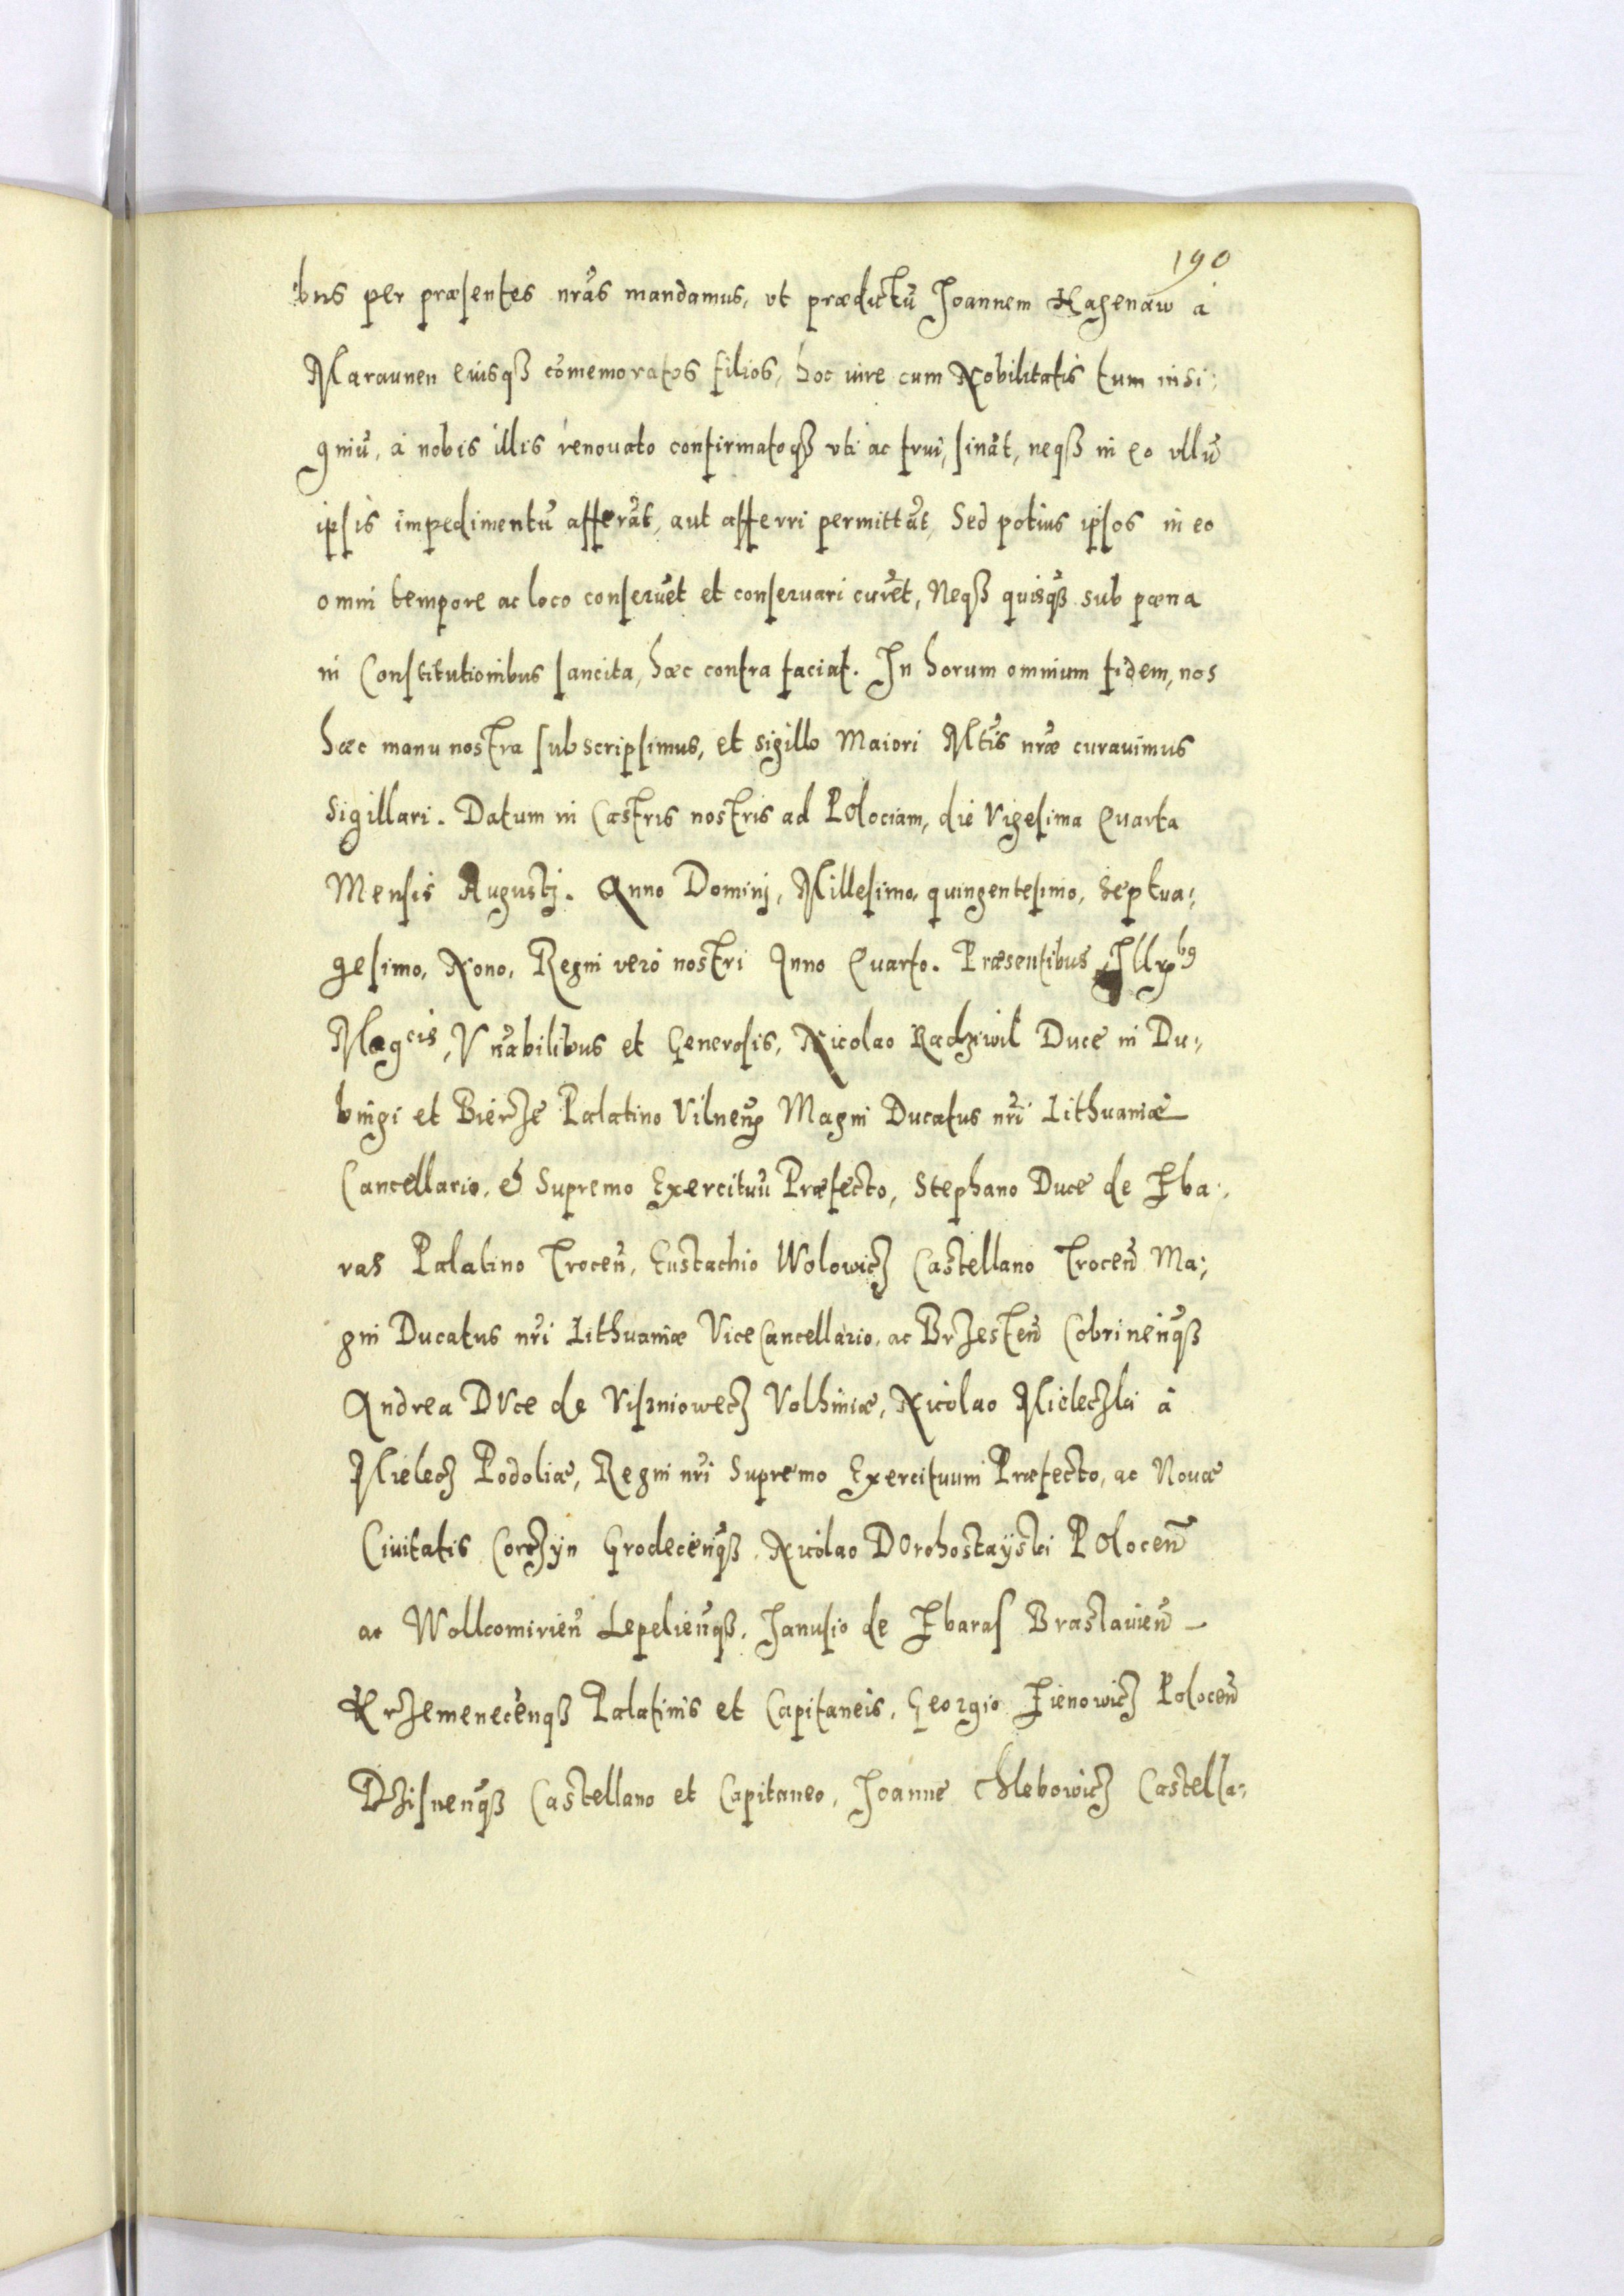 190
bus per præsentes nrãs mandamus, vt prædictũ Joannem Hagenaw à
Maraunen eiusqꝫ cõmemoratos filios, hoc iure cum Nobilitatis tum insi:
gniũ, à nobis illis renouato confirmatoqꝫ vti ac frui, sinãt, neqꝫ in eo vllũ
ipsis impedimentũ afferãt, aut afferri permittãt, Sed potius ipsos in eo
omni tempore ac loco conseruẽt et conseruari curẽt, Neqꝫ quisqꝫ sub pœna
in Constitutionibus sancita, hæc contra faciat. In horum omnium fidem, nos
hæc manu nostra subscripsimus, et sigillo Maiori Mtĩs nræ̃ curauimus
Sigillari. Datum in Castris nostris ad Polociam, die Vigesima Quarta
Mensis Augustj. Anno Dominj, Millesimo, quingentesimo, Septua:
gesimo, Nono, Regni verò nostri Anno Quarto. Præsentibus Illr̃bꝰ
Magcis, Vnãbilibus et Generosis, Nicolao Radziwil Duce in Du:
bingi et Bierze Palatino Vilneñ Magni Ducatus nrĩ Lithuaniæ
Cancellario, & Supremo Exercituũ Præfecto, Stephano Duce de Zba:
ras Palatino Troceñ, Eustachio Wolowicz Castellano Troceñ Ma:
gni Ducatus nrĩ Lithuaniæ ViceCancellario, ac Brzesteñ Cobrineñqꝫ
Andrea Duce de Visniowecz Volhiniæ, Nicolao Mieleczki à
Mielecz Podoliæ, Regni nrĩ Supremo Exercituum Præfecto, ac Nouæ
Ciuitatis Corczyn Grodeceñqꝫ, Nicolao Dorohostayski Poloceñ
ac Wolkomirieñ Lepelieñqꝫ, Janusio de Zbaras Braslauieñ
Krzemeneceñqꝫ Palatinis et Capitaneis, Georgio Zienowicz Poloceñ
Dzisneñqꝫ Castellano et Capitaneo, Joanne Chlebowicz Castella: